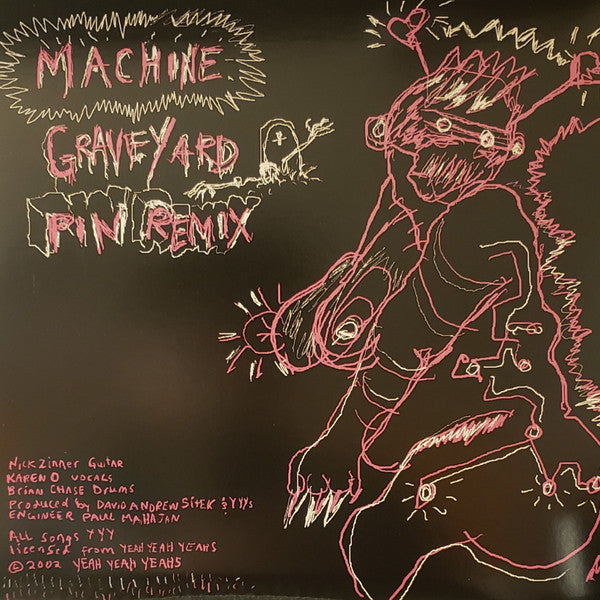 MACHINE
GRAVEYARD
PIN REMIX
Nick Zinner Guitar
KAREN O vocals
Brian CHASE Drums
Produced by DAVID ANDREW SITEK & YYYs
ENGINEER PAUL MAHAJAN
ALL Songs YYY
Licensed from YEAH YEAH YEAHS
© 2002 YEAH YEAH YEAHS